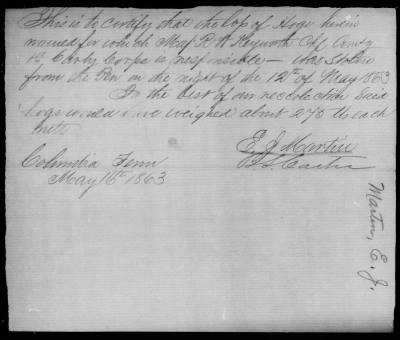 This is to certify that the lop of Hogs herein
named for which Maj R. H. Heyworth Chf Comsy
1st Cavly Corps is responsible — was Stolen
from the Pen on the night of the 12th of May 1863
In the best of our recolection Said
hogs would have weighed about 270 lbs each
nett
E. J. Martin
Columbia Tenn
May 16th 1863
Martin, E. J.